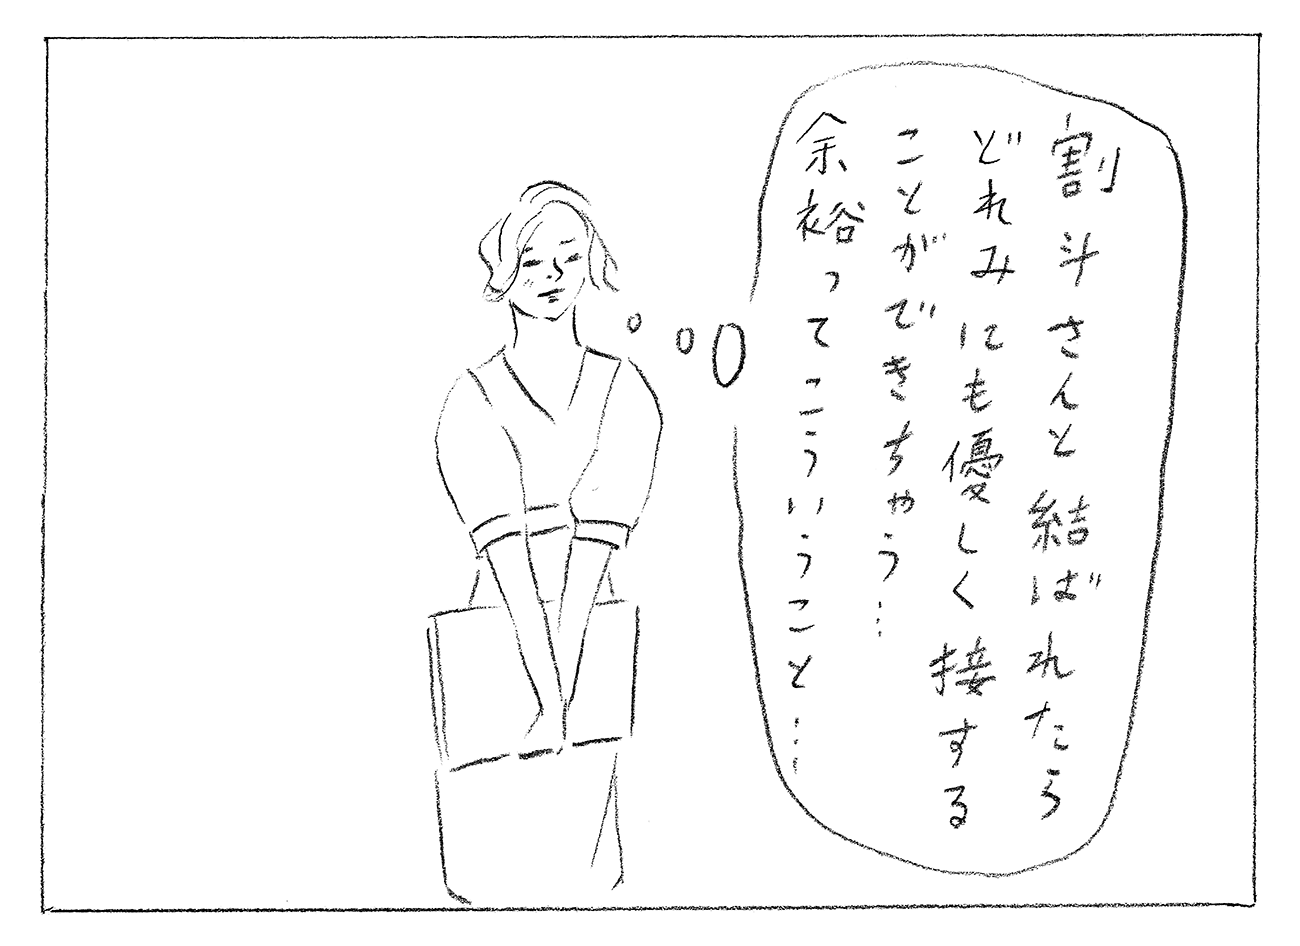 割斗さんと結ばれたら
どれみにも優しく接する
ことができちゃう…
余裕ってこういうこと…